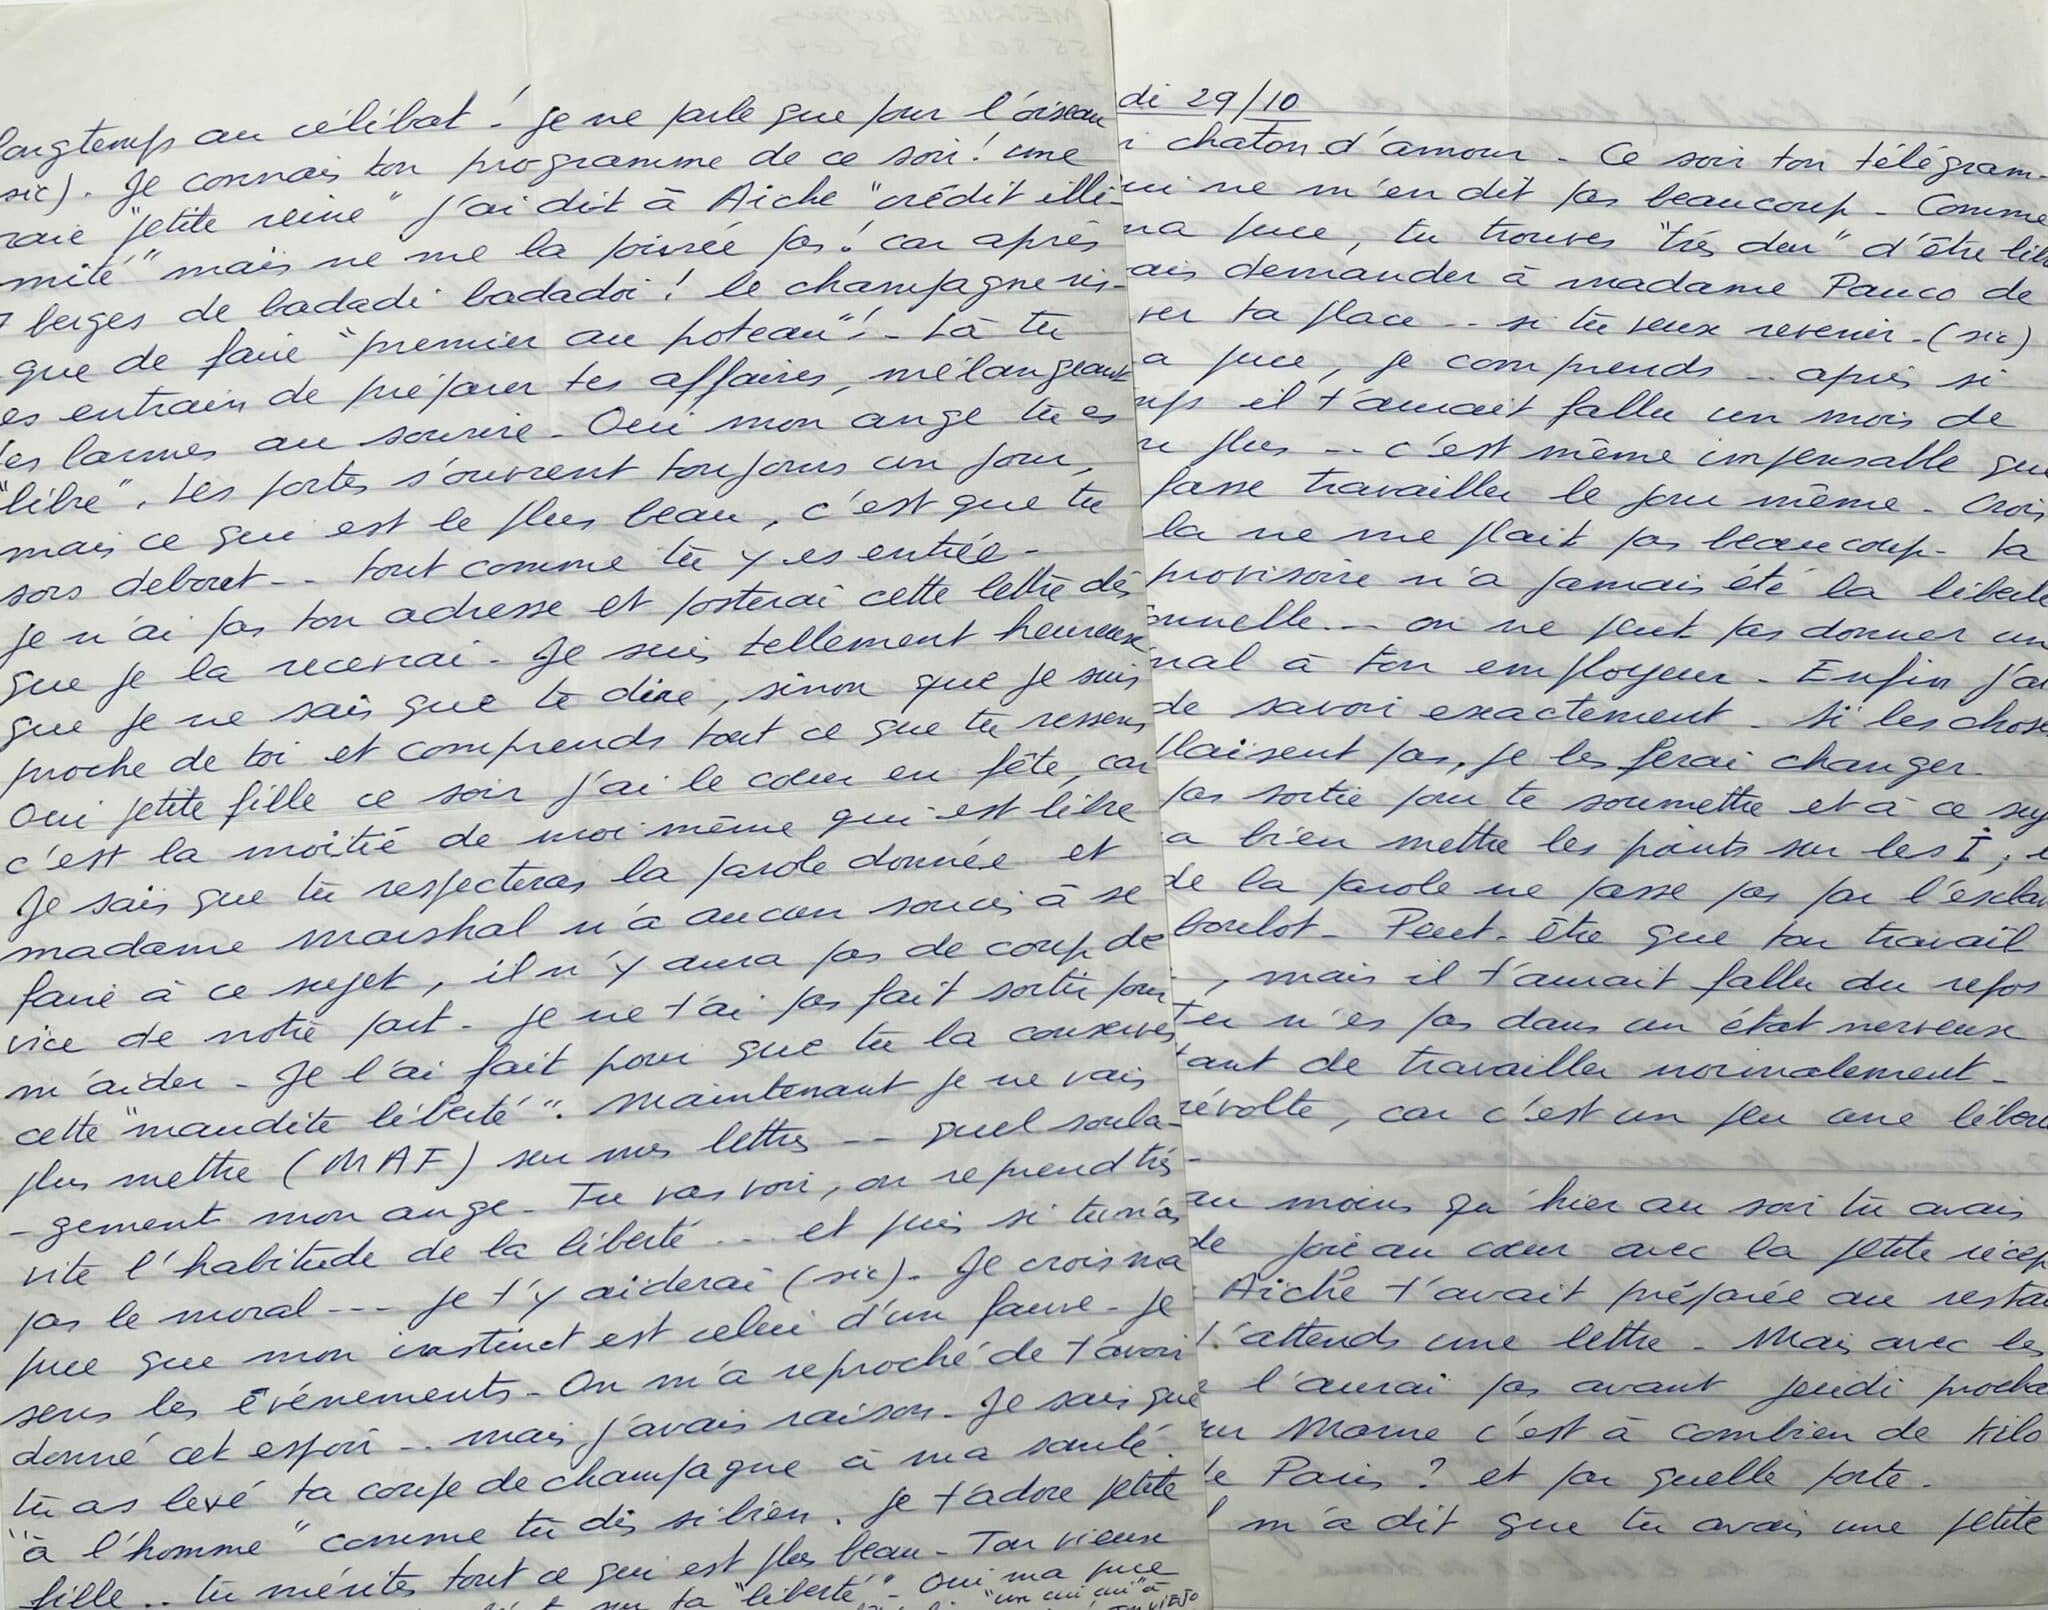 longtemps au célibat! je ne parle que pour l'oiseau
sic). Je connais ton programme de ce soir! une
raie "petite reine" j'ai dit à Aiche "crédit illi-
mité" mais ne me la poivrée pas! car après
berges de badadi badadoi! le champagne ris-
que de faire "premier au poteau"!- Là tu
es entrain de préparer tes affaires, mélangeant
les larmes au sourire- Oui mon ange tu es
"libre". Les portes s'ouvrent toujours un jour,
mais ce qui est le plus beau, c'est que tu
sors debout-- tout comme tu y es entrée-
Je n'ai pas ton adresse et posterai cette lettre dès
que je la recevrai- Je suis tellement heureux
que je ne sais que te dire, sinon que je suis
proche de toi et comprends tout ce que tu ressens
Oui petite fille ce soir j'ai le cœur en fête, car
c'est la moitié de moi même qui est libre
Je sais que tu respecteras la parole donnée et
madame marshal n'a aucun soucis à se
faire à ce sujet, il n'y aura pas de coup de
vice de notre part- Je ne t'ai pas fait sortir pour
m'aider- Je l'ai fait pour que tu la conserves
cette "maudite liberté". Maintenant je ne vais
plus mettre (MAF) sur mes lettres -- quel soula-
-gement mon ange- Tu vas voir, on reprend très-
vite l'habitude de la liberté... et puis si tu n'as
pas le moral --- je t'y aiderai (sic)- Je crois ma
puce que mon instinct est celui d'un fauve- je
sens les évènements- On m'a reproché de t'avoir
donné cet espoir-- mais j'avais raison- Je sais que
tu as levé ta coupe de champagne à ma santé.
"à l'homme" comme tu dis si bien. Je t'adore petite
fille.. tu mérites tout ce qui est plus beau- Ton vieux
sur ta "liberté"- Oui ma puce
"un cui cui" à
di 29/10
chaton d'amour- Ce soir ton télégram-
ui ne m'en dit pas beaucoup- Comme
ma puce, tu trouves "très dur" d'être lib
ais demander à madame Pauco de
ver ta place-- si tu veux revenir-(sic)
a puce, je comprends-- après si
mps il t'aurait fallu un mois de
plus-- c'est même impensable que
fasse travailler le jour même- Crois
la ne me plait pas beaucoup- La
provisoire n'a jamais été la liberté
onnelle-- on ne peut pas donner un
nal à ton employeur- Enfin j'ai
de savoir exactement- Si les choses
plaisent pas, je les ferai changer-
pas sortie pour te soumettre et à ce suj
a bien mettre les points sur les I;
de la parole ne passe pas par l'escla
boulot- Peut-être que ton travail
, mais il t'aurait fallu du repos
Tu n'es pas dans un état nerveux
tant de travailler normalement-
révolte, car c'est un peu une libert
au moins qu'hier au soir tu avais
de joie au cœur avec la petite récep
Aiche t'avait préparée au restau
j'attends une lettre- Mais avec les
l'aurai pas avant jeudi procha
Marne c'est à combien de kilo
de Paris? et par quelle porte-
m'a dit que tu avais une petite